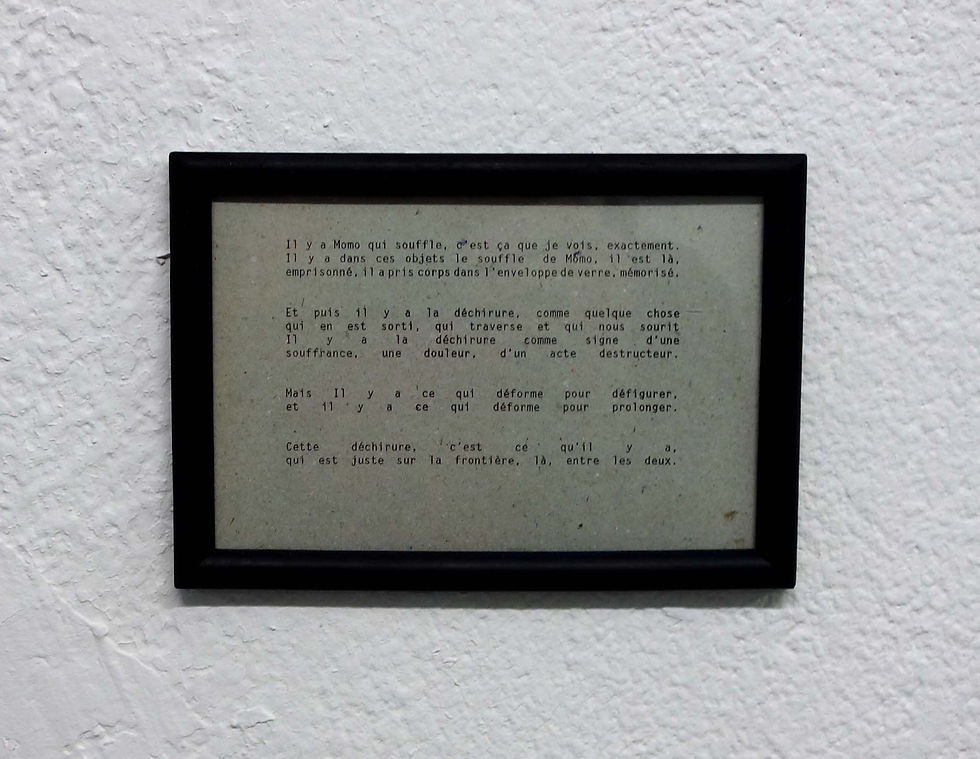 Il y a Momo qui souffle, c'est ça que je vois, exactement.
Il y a dans ces objets le souffle de Momo, il est là,
emprisonné, il a pris corps dans l'enveloppe de verre, mémorisé.
Et puis il y a la déchirure, comme quelque chose
qui en est sorti, qui traverse et qui nous sourit
Il y a la déchirure comme signe d'une
souffrance, une douleur, d'un acte destructeur.
Mais Il y a ce qui déforme pour défigurer,
et il y a ce qui déforme pour prolonger.
Cette déchirure, c'est ce qu'il y a,
qui est juste sur la frontière, là, entre les deux.